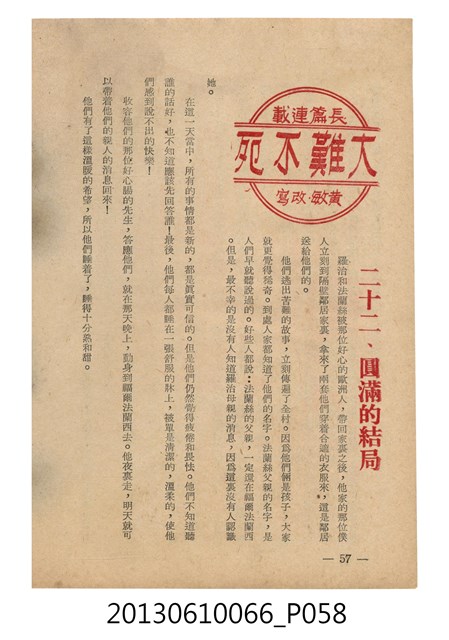 長篇連載
大難不死
黃敏·改寫
二十二、圓滿的結局
羅治和法蘭絲被那位好心的歐洲人，帶回家裏之後，他家的那位僕
人立刻到隔壁鄰居家裏，拿來了兩套他們穿着合適的衣服來，這是鄰居
送給他們的。
他們逃出苦難的故事，立刻傳遍了全村。因爲他們倆是孩子，大家
就更覺得稀奇。到處人家都知道了他們的名字。法蘭絲父親的名字，是
人們早就聽說過的。好些人都說：法蘭絲的父親，一定還在福爾法蘭西
。但是，最不幸的是沒有人知道羅治母親的消息，因爲這裏沒有人認識
她。
在這一天當中，所有的事情都是新的，都是眞實可信的。但是他們仍然覺得疲倦和畏怯。他們不知道聽
誰的話好，也不知道應該先回答誰！最後，他們每人都睡在一張舒服的牀上，被單是清潔的，溫柔的，使他
們感到說不出的快樂！
收容他們的那位好心腸的先生，答應他們，就在那天晚上，動身到福爾法蘭西去。他夜裏走，明天就可
以帶着他們的親人的消息回來！
他們有了這樣溫暖的希望，所以他們睡着了，睡得十分熟和甜。
— 57 —
20130610066_P058